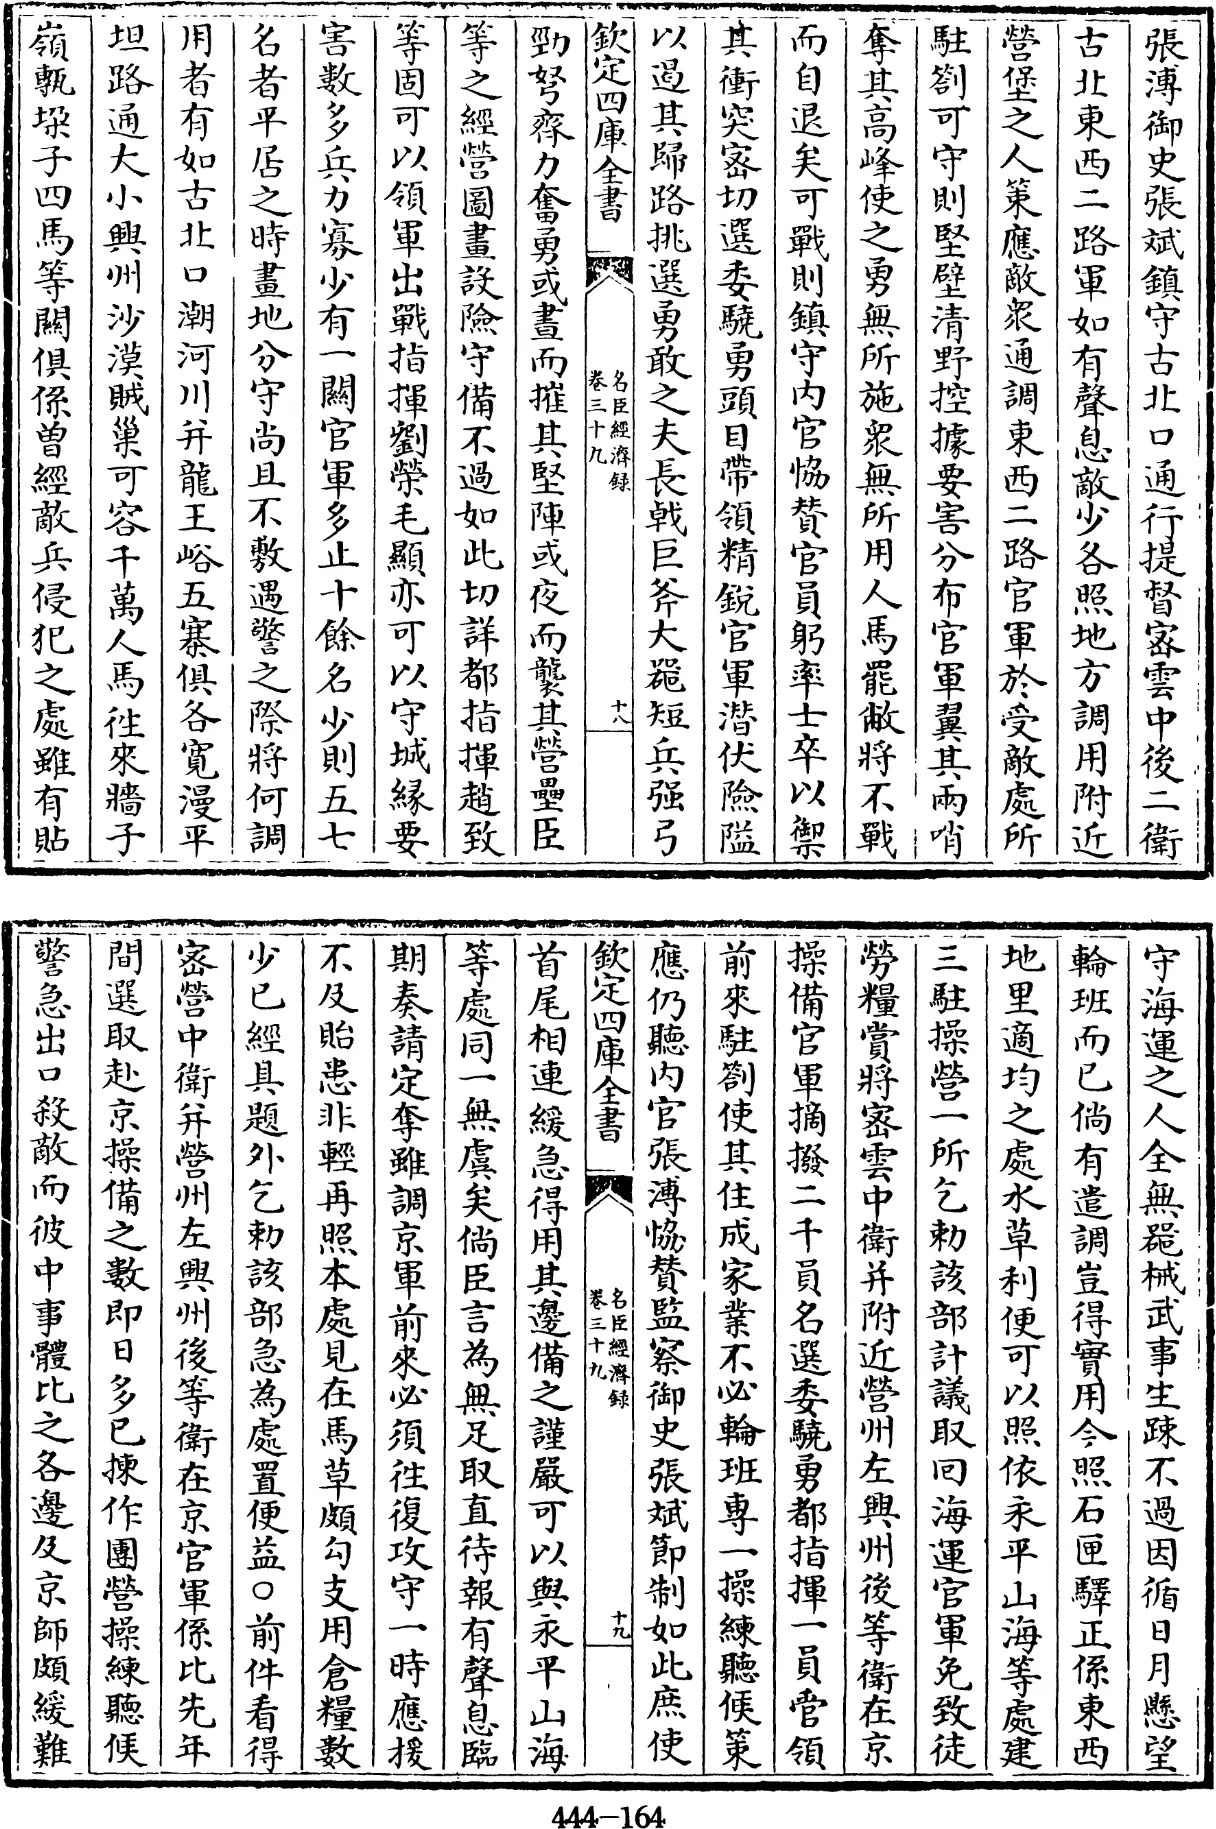 張溥御史張斌鎮守古北口通行提督密雲中後二衛
古北東西二路軍如有聲息敵少各照地方調用附近
營堡之人策應敵衆通調東西二路官軍於受敵處所
駐劄可守則堅壁清野控據要害分布官軍翼其兩哨
奪其高峰使之勇無所施衆無所用人馬罷敝將不戰
而自退矣可戰則鎮守内官協賛官員躬率士卒以禦
其衝突密切選委驍勇頭目帶領精銳官軍潛伏險隘
以遏其歸路挑選勇敢之夫長㦸巨斧大噐短兵强弓
欽定四庫全書
名臣經濟録
卷三十九
十八
勁弩齊力奮勇或晝而摧其堅陣或夜而襲其營壘臣
等之經營圖畫設險守備不過如此切詳都指揮趙致
等固可以領軍出戰指揮劉榮毛顯亦可以守城縁要
害數多兵力寡少有一關官軍多止十餘名少則五七
名者平居之時畫地分守尚且不敷遇警之際將何調
用者有如古北口潮河川并龍王峪五寨俱各寛漫平
坦路通大小興州沙漠賊巢可容千萬人馬徃來牆子
嶺甎垜子四馬等關俱係曾經敵兵侵犯之處雖有貼
守海運之人全無噐械武事生踈不過因循日月懸望
輪班而已倘有遣調豈得實用今照石匣驛正係東西
地里適均之處水草利便可以照依永平山海等處建
三駐操營一所乞勅該部計議取回海運官軍免致徒
勞糧賞將密雲中衛并附近營州左興州後等衛在京
操備官軍摘撥二千員名選委驍勇都指揮一員管領
前來駐劄使其住成家業不必輪班專一操練聽候策
應仍聽内官張溥協賛監察御史張斌節制如此庶使
欽定四庫全書
名臣經濟録
卷三十九
十九
首尾相連緩急得用其邊備之謹嚴可以與永平山海
等處同一無虞矣倘臣言為無足取直待報有聲息臨
期奏請定奪雖調京軍前來必須徃復攻守一時應援
不及貽患非輕再照本處見在馬草頗勾支用倉糧數
少已經具題外乞勅該部急為處置便益○前件看得
密營中衛并營州左興州後等衛在京官軍係比先年
間選取赴京操備之數即日多已揀作團營操練聽候
警急出口殺敵而彼中事體比之各邊及京師頗緩難
444-164